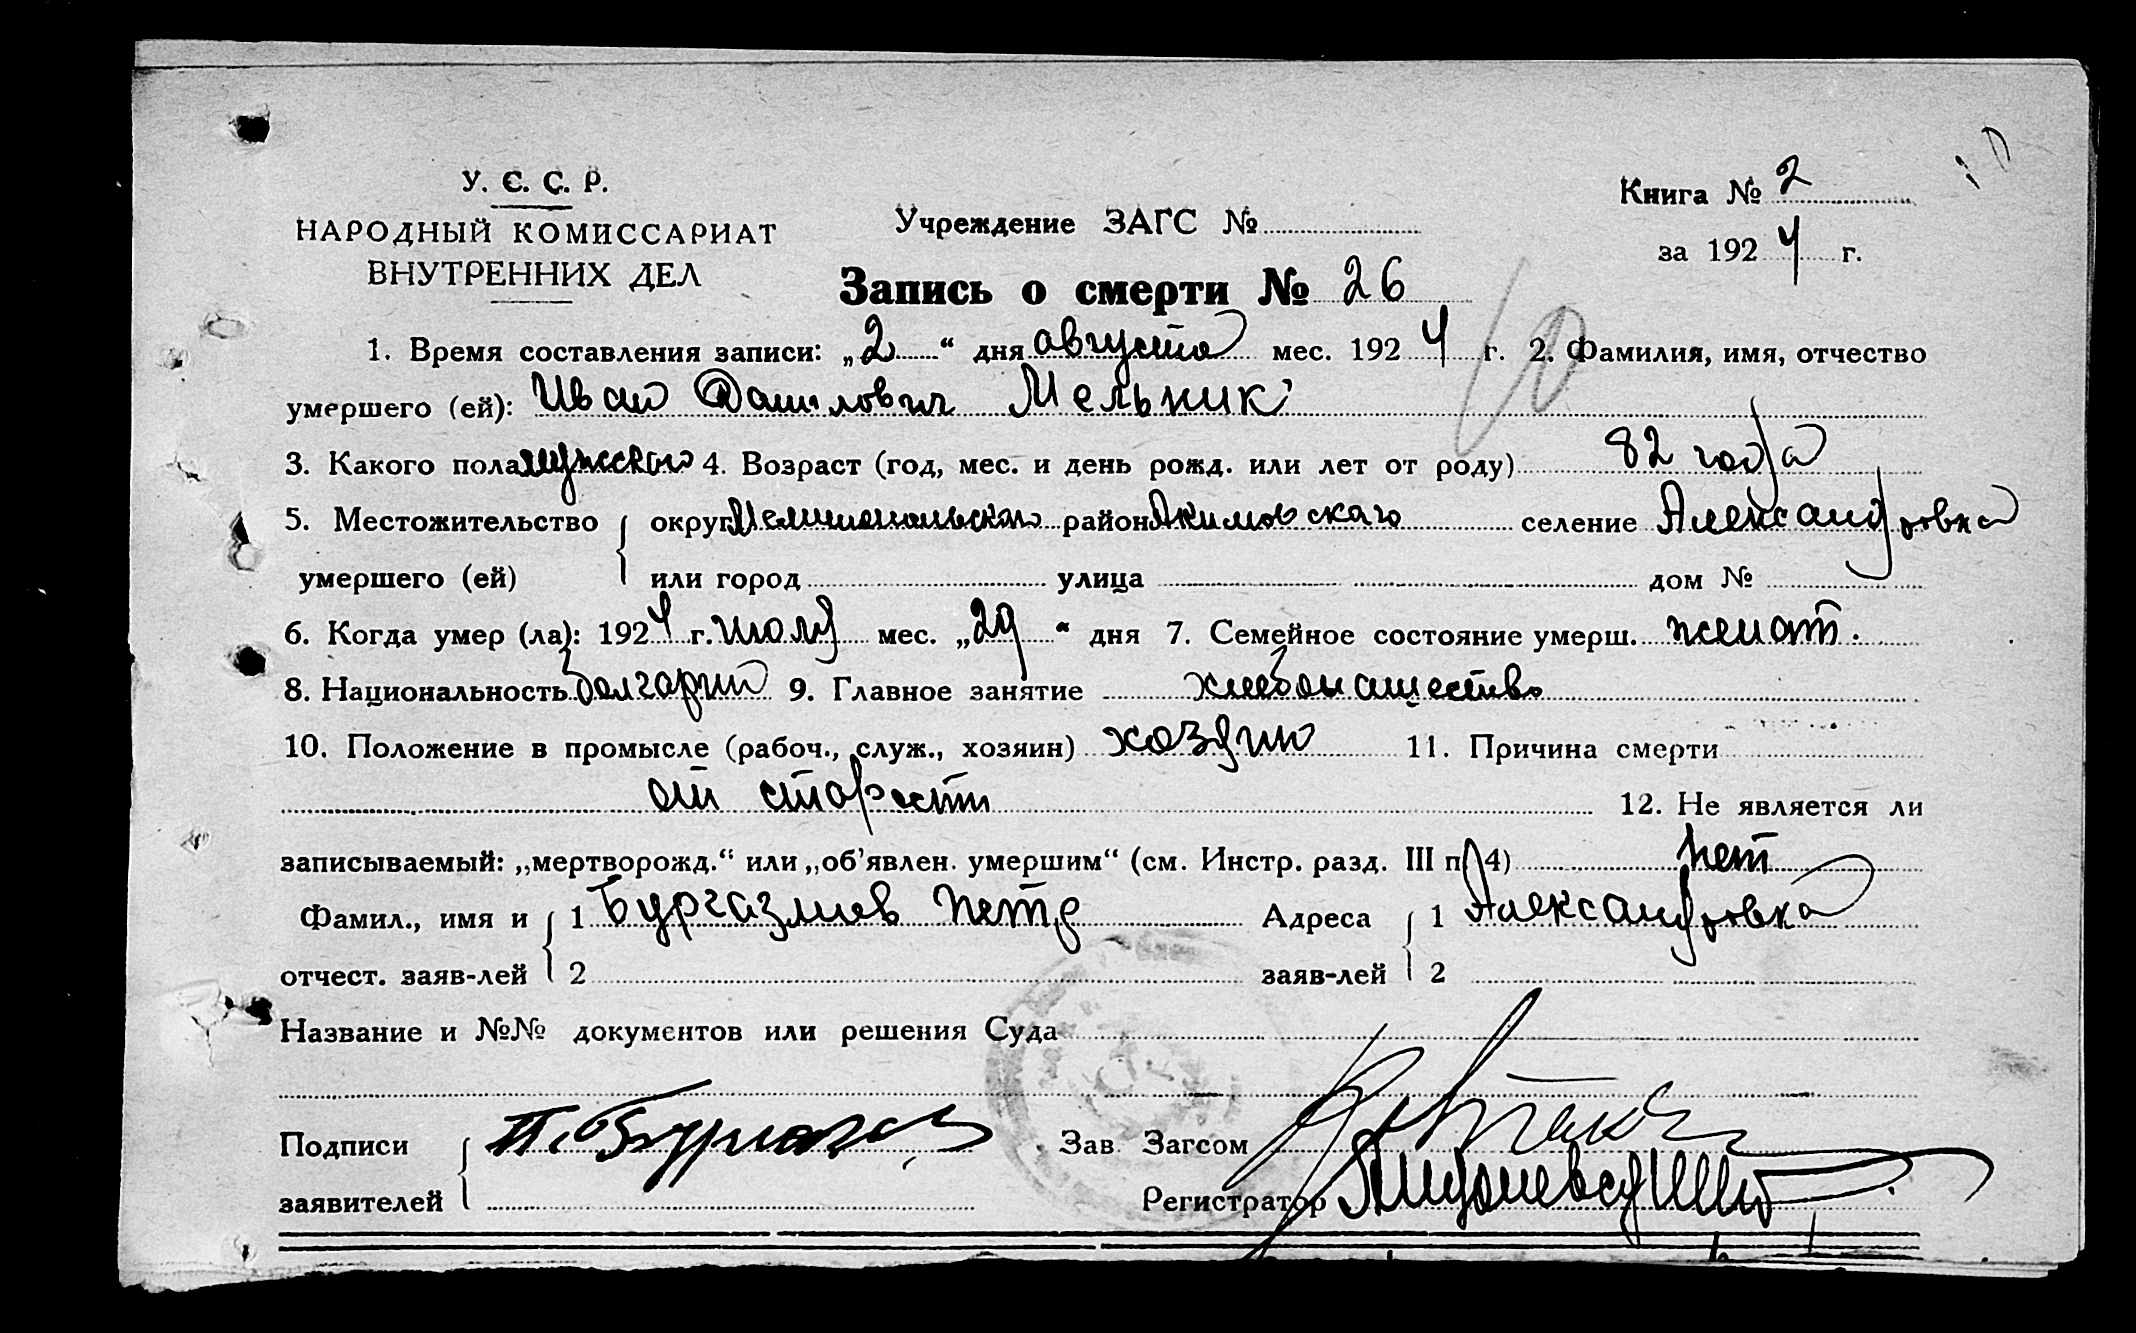 У. С. С. Р.
НАРОДНЫЙ КОМИССАРИАТ
ВНУТРЕННИХ ДЕЛ
Учреждение ЗАГС №
Книга № 2
за 1924 г.
Запись о смерти № 26
10
1. Время составления записи: „2“ дня августа мес. 1924 г. 2. Фамилия, имя, отчество
умершего (ей): Иван Данилович Мельник
3. Какого пола мужского 4. Возраст (год, мес. и день рожд. или лет от роду) 82 года
5. Местожительство округ Мелитопольского район Акимовскаго селение Александровка
умершего (ей) или город улица дом №
6. Когда умер (ла): 1924 г. июля мес. „29“ дня 7. Семейное состояние умерш. женат.
8. Национальность болгарин 9. Главное занятие хлебопашество
10. Положение в промысле (рабоч., служ., хозяин) хозяин 11. Причина смерти
от старости 12. Не является ли
записываемый: „мертворожд.“ или „об'явлен. умершим“ (см. Инстр. разд. III п. 4) нет
Фамил., имя и 1 Бургазлиев Петр Адреса 1 Александровка
отчест. заяв-лей 2 заяв-лей 2
Название и №№ документов или решения Суда
Подписи П. Зав. Загсом
заявителей Регистратор